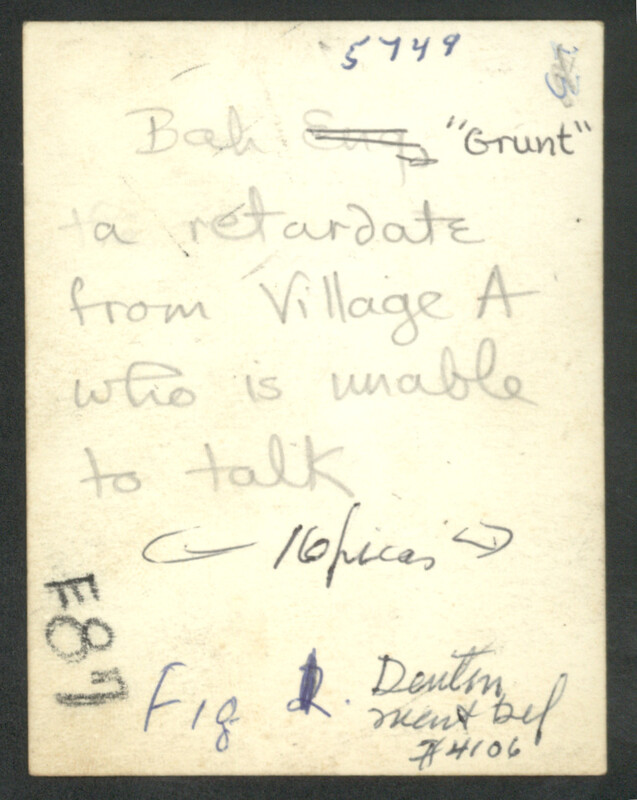 5749
Bah Eng "Grunt"
a retardate
from Village A
who is unable
to talk
16 picas
F87
Fig 2.
Denton
ment def
#4106